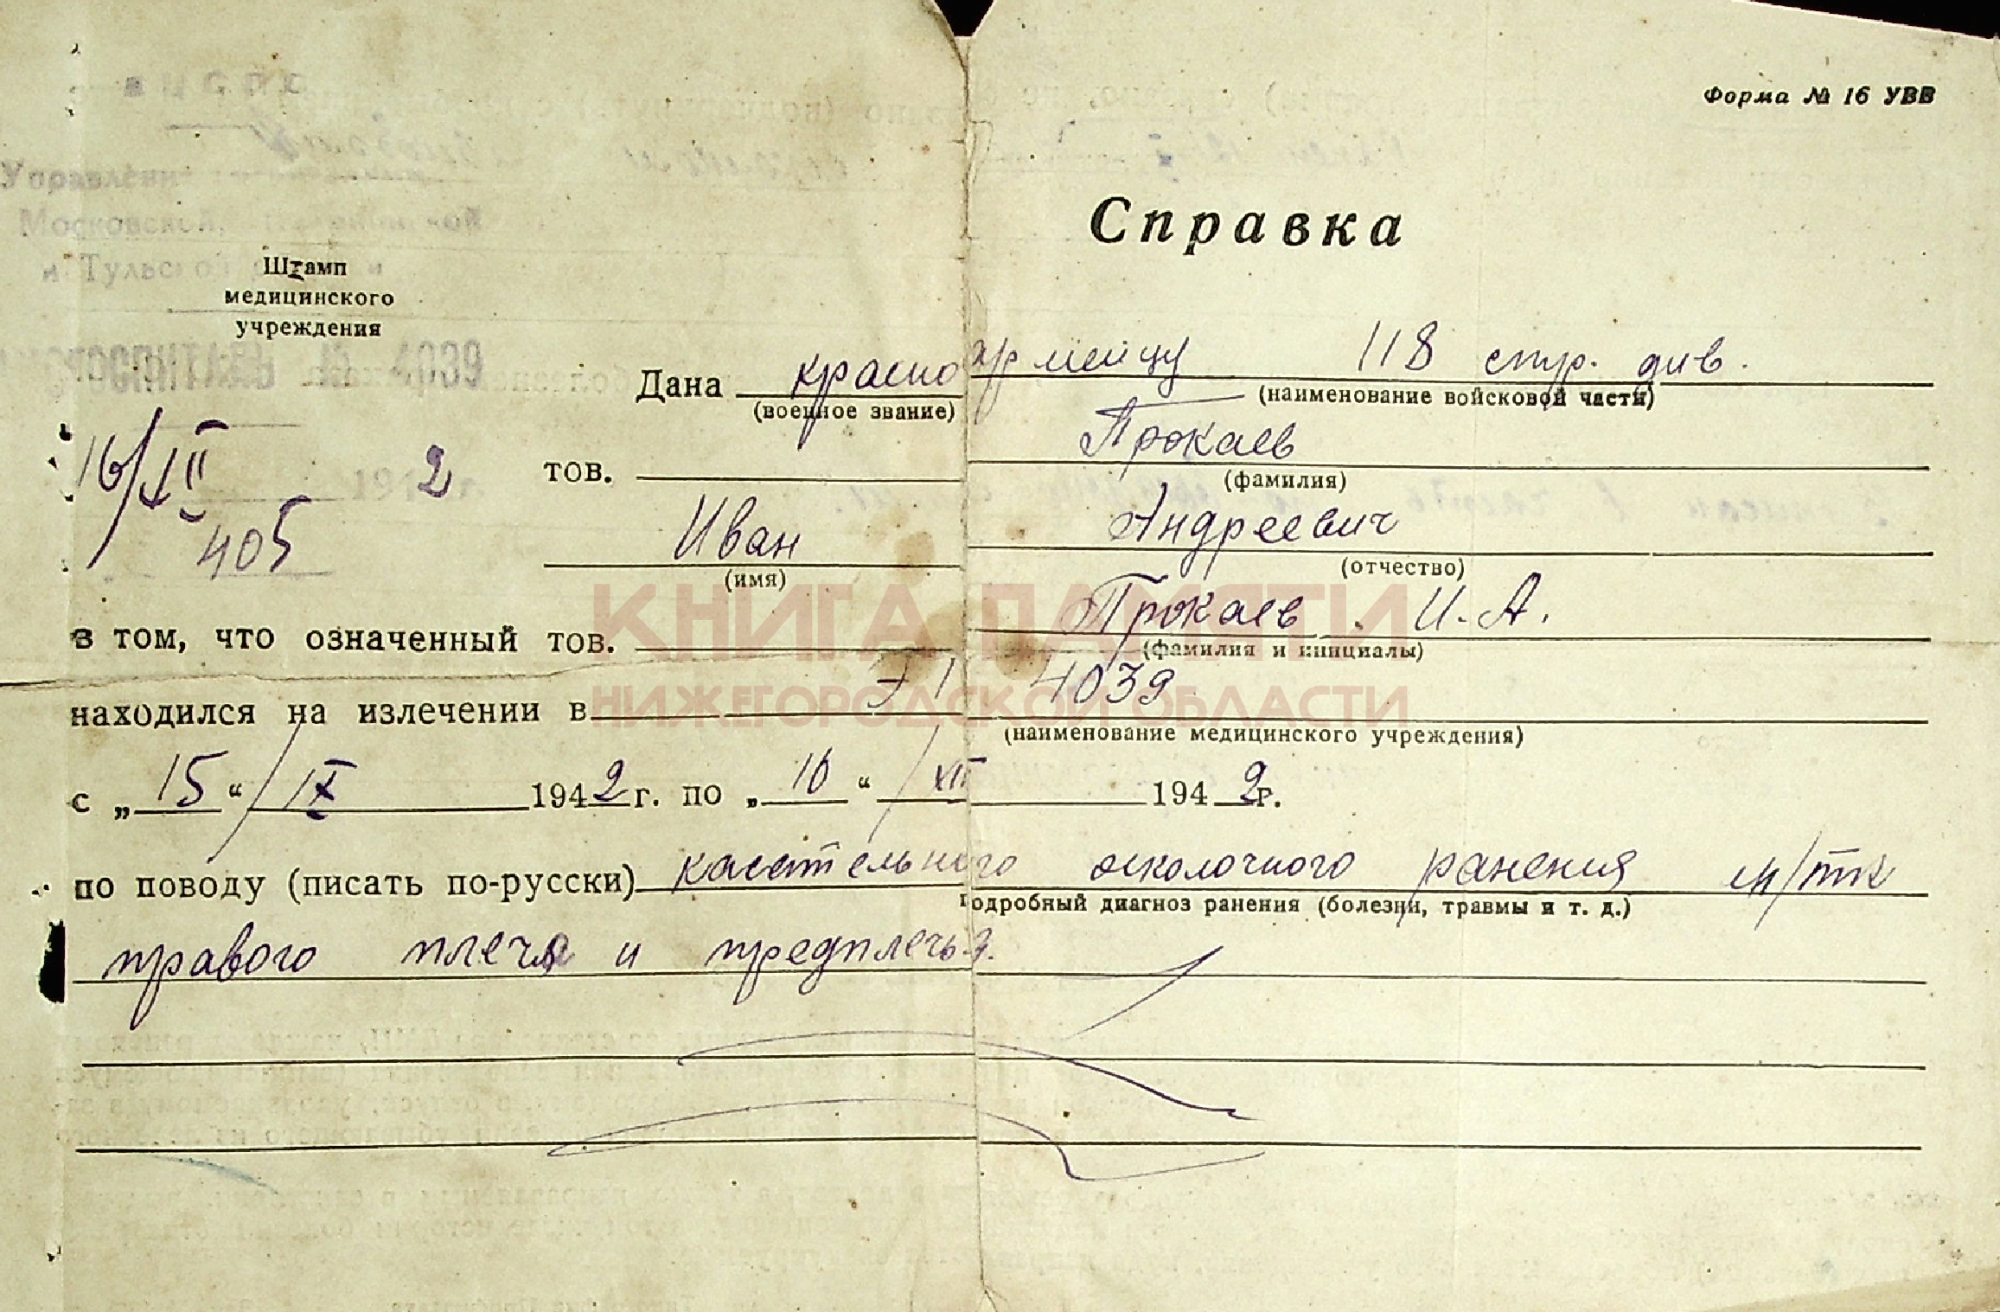 Форма № 16 УВВ
Справка
Управлени
Московской,
и Тульской
Штамп
медицинского
учреждения
4039
16/XII 2
405
Дана красноармейцу 118 стр. див.
(военное звание) (наименование войсковой части)
тов. Прокаев
(фамилия)
Иван Андреевич
(имя) (отчество)
в том, что означенный тов. Прокаев И.А.
(фамилия и инициалы)
КНИГА ПАМЯТИ
НИЖЕГОРОДСКОЙ ОБЛАСТИ
находился на излечении в ЭГ 4039
(наименование медицинского учреждения)
с „15“/IX 1942 г. по „16“/XII 1942 г.
по поводу (писать по-русски) касательного осколочного ранения м/тк
Подробный диагноз ранения (болезни, травмы и т. д.)
правого плеча и предплечья.